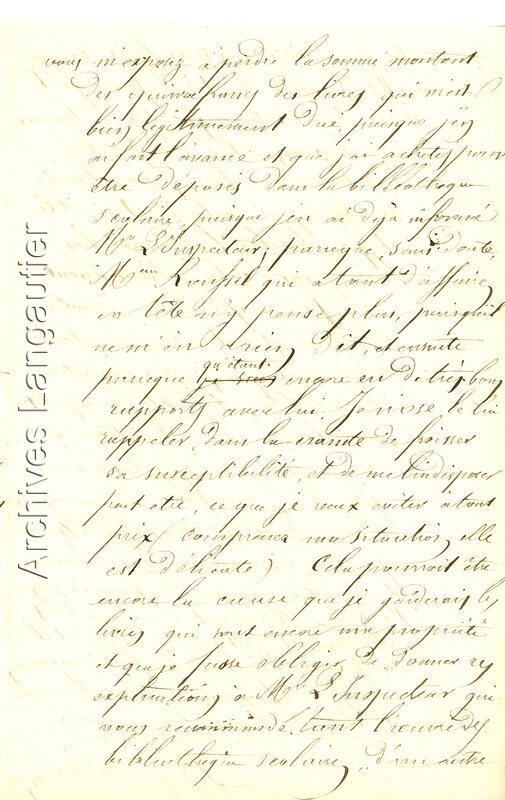 vous m'exposez à perdre la somme montant
des quinze francs des livres qui m'est
bien légitimement due, puisque j'en
ai fait l'avance et que j'ai achetés pour
être déposés dans la bibliothèque
scolaire, puisque j'en ai déjà informé
Mr L'Inspecteur; parceque, sans doute,
Roussel qui a tant d'affaires
en tête n'y pense plus, puisqu'il
ne m'en a rien dit, et ensuite
parceque qu'étant encore en de très bons
rapports avec lui, Je n'ose le lui
rappeler dans la crainte de froisser
sa susceptibilité, et de me l'indisposer
peut être, ce que je veux éviter à tout
prix (comprenez ma situation, elle
est délicate) Cela pourrait être
encore la cause que je garderais les
livres qui sont encore ma propriété
et que je fusse obliger de donner ces
explications à Mr L'Inspecteur qui
nous recommande tant l'œuvre des
bibliothèques scolaires, d'un autre
Archives Langautier